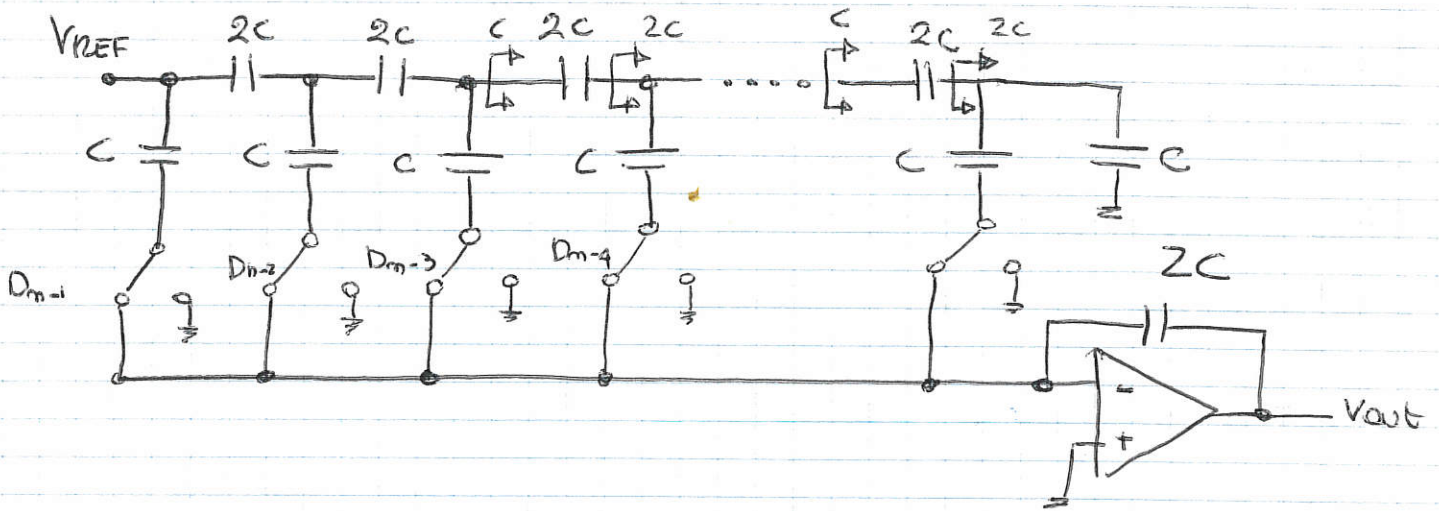 VREF 2C 2C C 2C 2C C 2C 2C
C C C C C C
Dn-1 Dn-2 Dn-3 Dn-4
2C
-
+
Vout